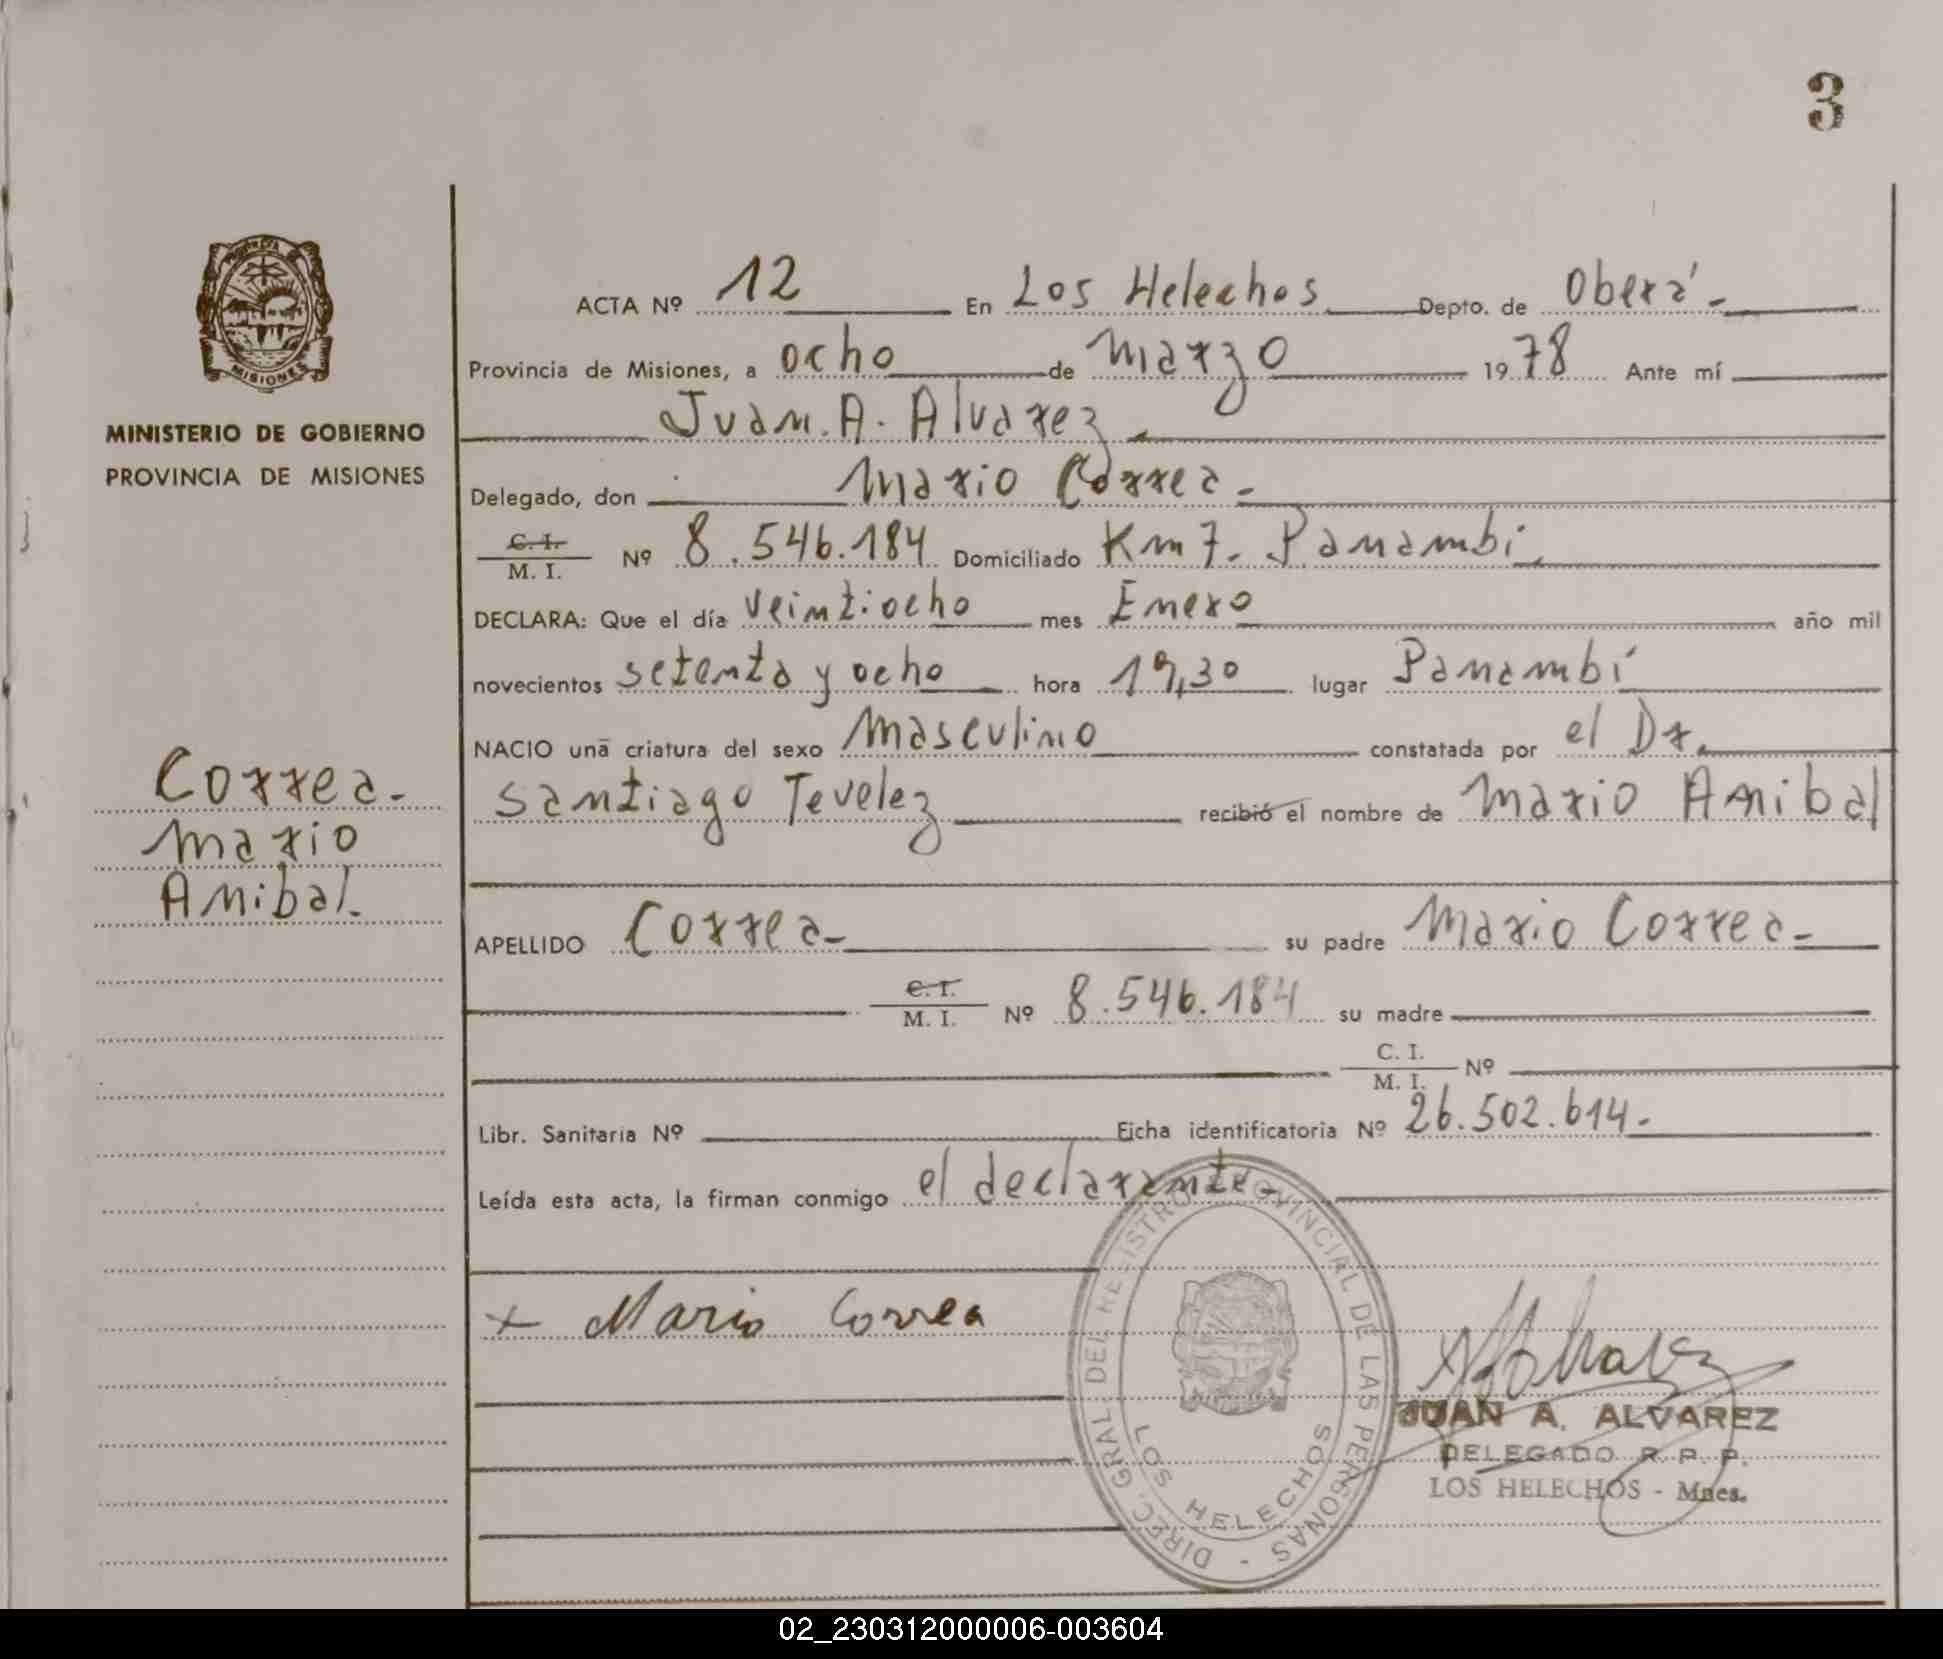 3
MINISTERIO DE GOBIERNO
PROVINCIA DE MISIONES
Correa-
Mario
Anibal.
ACTA Nº 12 En Los Helechos Depto. de Oberá-
Provincia de Misiones, a ocho de Marzo 1978 Ante mí
Juan. A. Alvarez
Delegado, don Mario Correa-
C. I.
M. I. Nº 8.546.184 Domiciliado Km 7. Panambi.
DECLARA: Que el día veintiocho mes Enero año mil
novecientos setenta y ocho hora 19,30 lugar Panambí
NACIO una criatura del sexo Masculino constatada por el Dr.
Santiago Tevelez recibió el nombre de Mario Anibal
APELLIDO Correa- su padre Mario Correa-
C. I.
M. I. Nº 8.546.184 su madre
C. I.
M. I. Nº
Libr. Sanitaria Nº Ficha identificatoria Nº 26.502.614.
Leída esta acta, la firman conmigo el declarante-
+ Mario Correa
DIREC. GRAL. DEL REGISTRO PROVINCIAL DE LAS PERSONAS -
LOS HELECHOS
JUAN A. ALVAREZ
DELEGADO R. P. P.
LOS HELECHOS - Mnes.
02_230312000006-003604